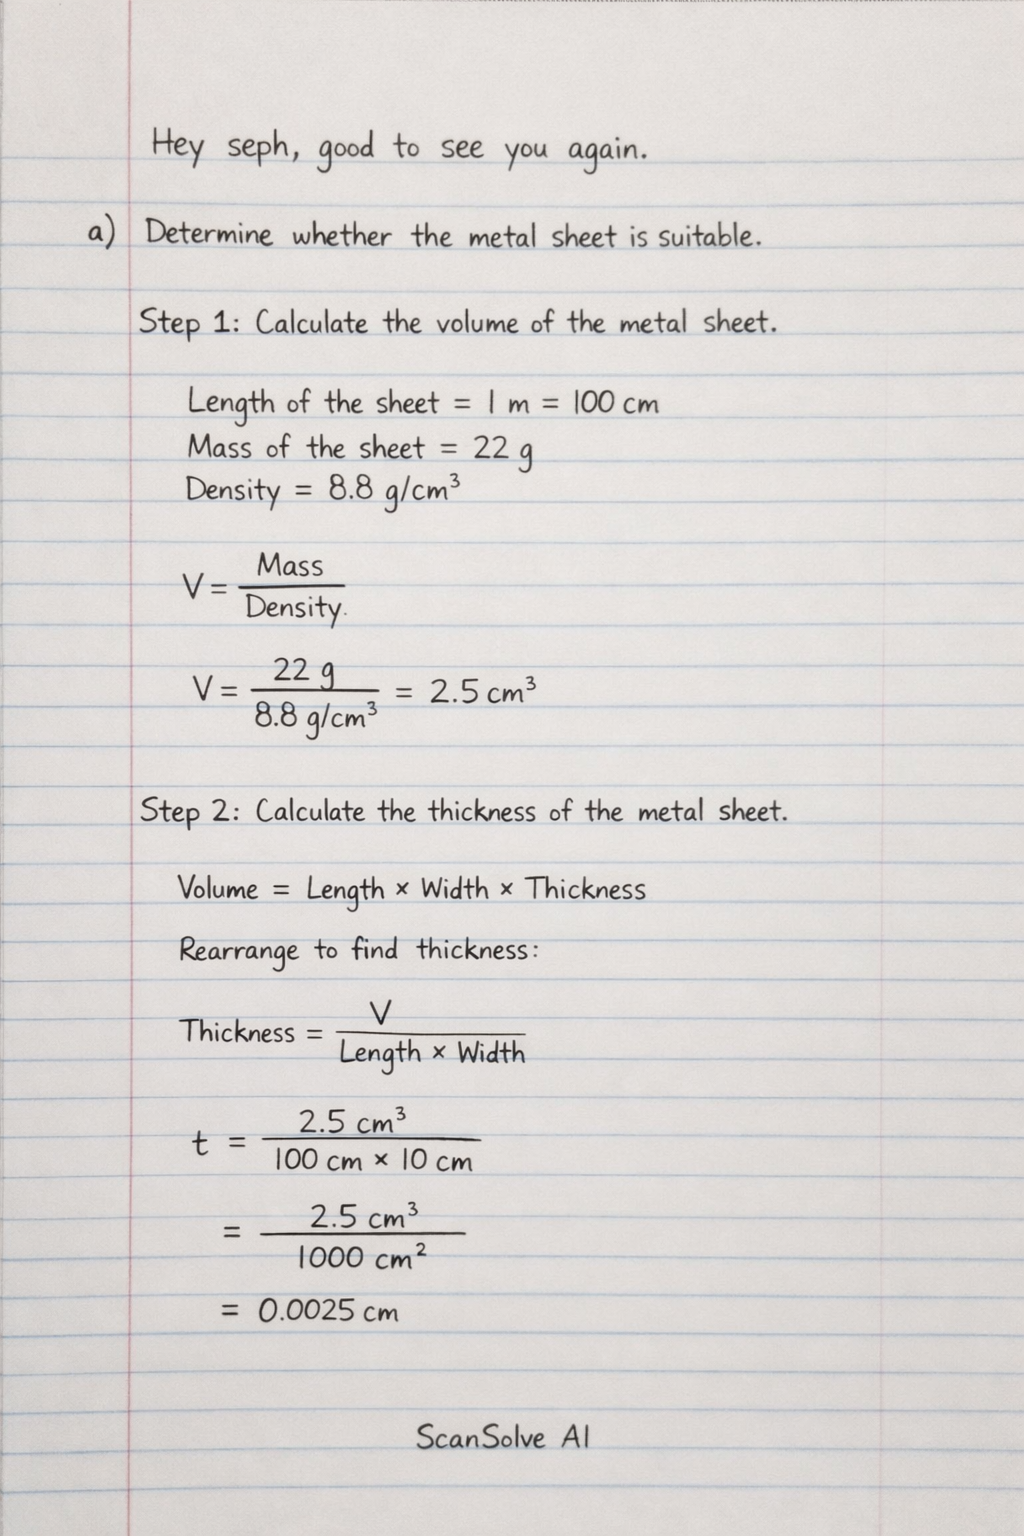 Hey seph, good to see you again.
a) Determine whether the metal sheet is suitable.
Step 1: Calculate the volume of the metal sheet.
Length of the sheet = 1 m = 100 cm
Mass of the sheet = 22 g
Density = 8.8 g/cm³
V = Mass / Density.
V = 22 g / 8.8 g/cm³ = 2.5 cm³
Step 2: Calculate the thickness of the metal sheet.
Volume = Length × Width × Thickness
Rearrange to find thickness:
Thickness = V / Length × Width
t = 2.5 cm³ / 100 cm × 10 cm
= 2.5 cm³ / 1000 cm²
= 0.0025 cm
ScanSolve AI